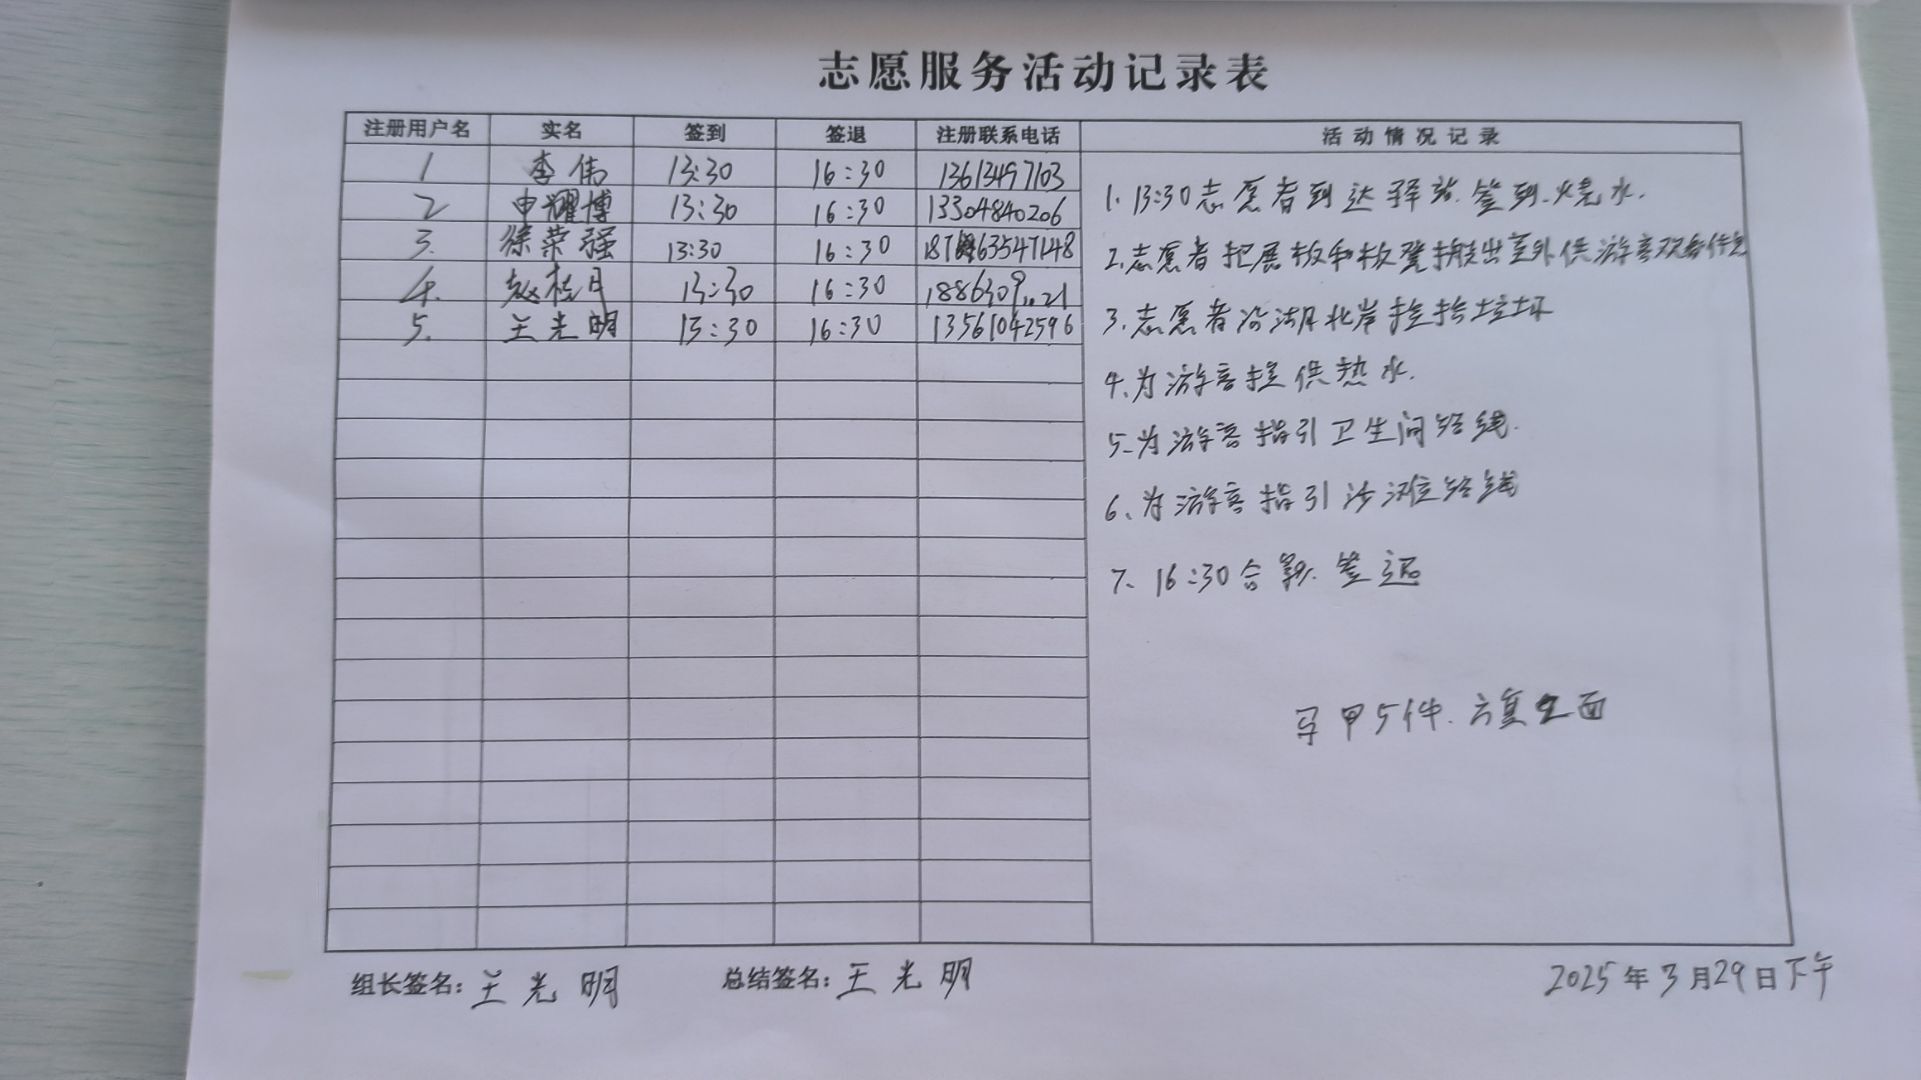 志愿服务活动记录表
注册用户名 实名 签到 签退 注册联系电话 活动情况记录
1 李伟 13:30 16:30 13613497103
2 申耀博 13:30 16:30 13304840206
3. 徐荣强 13:30 16:30
4. 赵桂月 13:30 16:30
5. 王光明 13:30 16:30 13561042596
1. 13:30志愿者到达驿站.签到.烧水.
2.志愿者把展板和板凳搬出室外供游客观看休息
3.志愿者沿湖北岸捡拾垃圾
4.为游客提供热水.
5.为游客指引卫生间路线.
6、为游客指引沙滩路线
7、16:30合影.签退
马甲5件.
组长签名：王光明 总结签名：王光明 2025年3月29日下午